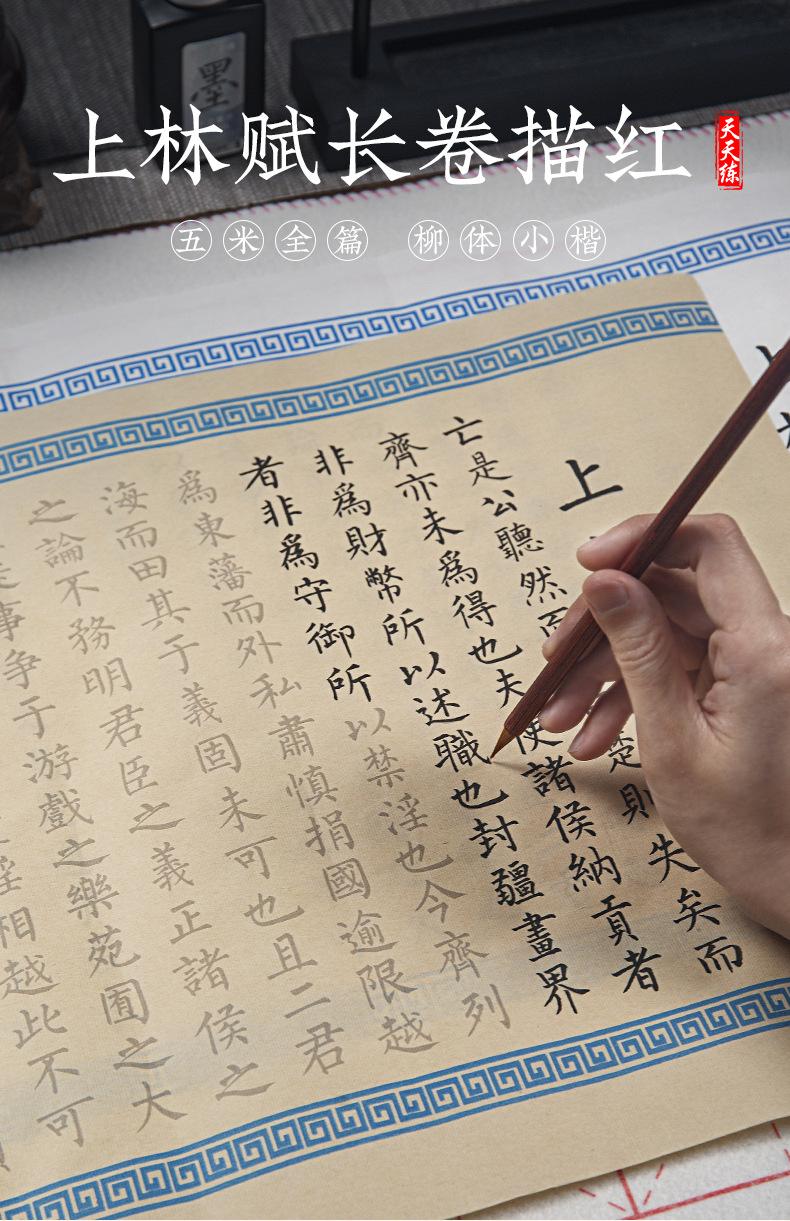 墨
上林赋长卷描红
天天练
五米全篇 柳体小楷
上
亡是公聽然而
楚則失矣而
齊亦未爲得也夫使諸侯納貢者
非爲財幣所以述職也封疆畫界
者非爲守御所以禁淫也今齊列
爲東藩而外私肅慎捐國逾限越
海而田其于義固未可也且二君
之論不務明君臣之義正諸侯之
事争于游戲之樂苑囿之大
相越此不可